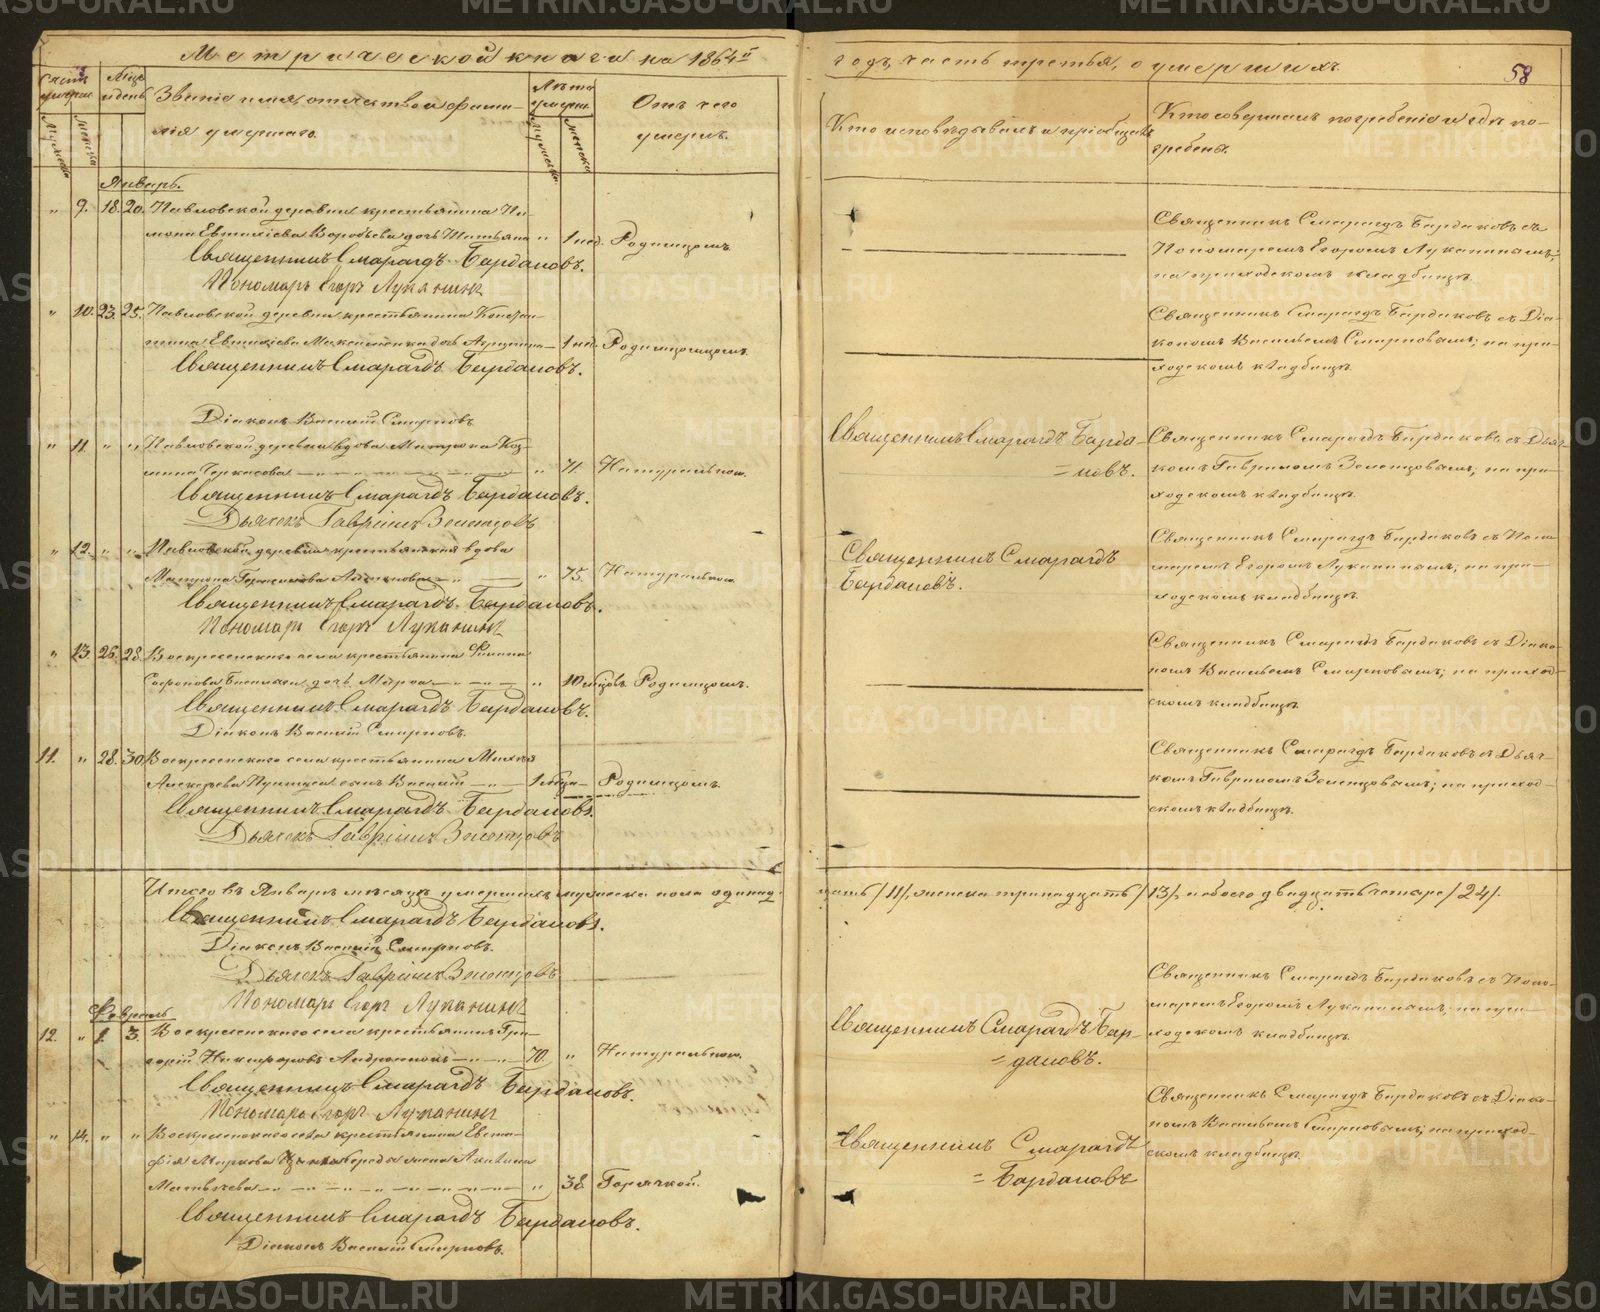 Метрической книги на 1864й
годъ, часть третья, о умершихъ.
58
Счетъ умерш.
Мѣс. и день
Званіе, имя, отчество и фами-
лія умершаго.
Лѣта умерш.
Отъ чего
умеръ.
Мужеска
Женска
Мужеска
Женска
Кто исповѣдывалъ и пріобщалъ
Кто совершалъ погребеніе и гдѣ по-
гребены.
Январь.
" 9. 18. 20. Павловской деревни крестьянина Пи-
мона Евтихіева Воробьева дочь Татьяна " 1 нед. Родимцомъ.
Священникъ Смарагдъ Бардаковъ.
Пономарь Егоръ Луканинъ
Священникъ Смарагдъ Бардаковъ съ
Пономаремъ Егоромъ Луканинымъ;
на приходскомъ кладбищѣ.
" 10. 23. 25. Павловской деревни крестьянина
Евтихіева дочь 1 нед. Родимцомъ.
Священникъ Смарагдъ Бардаковъ.
Діаконъ Василій Смирновъ
Священникъ Смарагдъ Бардаковъ съ Діа-
кономъ Васильемъ Смирновымъ; на при-
ходскомъ кладбищѣ.
" 11. " " Павловской деревни вдова Матрона Коз-
мина Черкасова " 71. Натурально.
Священникъ Смарагдъ Бардаковъ.
Дьячекъ Гавріилъ Зеленцовъ
Священникъ Смарагдъ Барда-
=ковъ.
Священникъ Смарагдъ Бардаковъ съ Дьяч-
комъ Гавриломъ Зеленцовымъ; на при-
ходскомъ кладбищѣ.
" 12. " " Павловской деревни крестьянская вдова
Матрона " 75. Натурально.
Священникъ Смарагдъ Бардаковъ.
Пономарь Егоръ Луканинъ
Священникъ Смарагдъ
Бардаковъ.
Священникъ Смарагдъ Бардаковъ съ Поно-
маремъ Егоромъ Луканинымъ; на при-
ходскомъ кладбищѣ.
" 13. 26. 28. Воскресенскаго села крестьянина
дочь Марѳа " 10 мѣсцовъ Родимцомъ.
Священникъ Смарагдъ Бардаковъ.
Діаконъ Василій Смирновъ.
Священникъ Смарагдъ Бардаковъ съ Діако-
номъ Васильемъ Смирновымъ; на приход-
скомъ кладбищѣ.
11. " 28. 30. Воскресенскаго села крестьянина
Алексѣева сынъ Василій Родимцомъ.
Священникъ Смарагдъ Бардаковъ.
Дьячекъ Гавріилъ Зеленцовъ
Священникъ Смарагдъ Бардаковъ съ Дьяч-
комъ Гавриломъ Зеленцовымъ; на приход-
скомъ кладбищѣ.
Итого въ Январѣ мѣсяцѣ умершихъ мужеска пола одинад-
цать /11/, женска тринадцать /13/, а обоего двадцать четыре /24/.
Священникъ Смарагдъ Бардаковъ.
Діаконъ Василій Смирновъ.
Дьячекъ Гавріилъ Зеленцовъ
Пономарь Егоръ Луканинъ
Февраль
12. " 1. 3. Воскресенскаго села крестьянинъ Гри-
горій Никифоровъ 70. " Натурально.
Священникъ Смарагдъ Бардаковъ.
Пономарь Егоръ Луканинъ
Священникъ Смарагдъ Бар-
=даковъ.
Священникъ Смарагдъ Бардаковъ съ Поно-
маремъ Егоромъ Луканинымъ; на при-
ходскомъ кладбищѣ.
" 14. " " Воскресенскаго села крестьянина Евста-
фія Маркова жена Акилина
Матвѣева " 38. Горячкой.
Священникъ Смарагдъ Бардаковъ.
Діаконъ Василій Смирновъ.
Священникъ Смарагдъ
=Бардаковъ
Священникъ Смарагдъ Бардаковъ съ Діако-
номъ Васильемъ Смирновымъ; на приход-
скомъ кладбищѣ.
METRIKI.GASO-URAL.RU